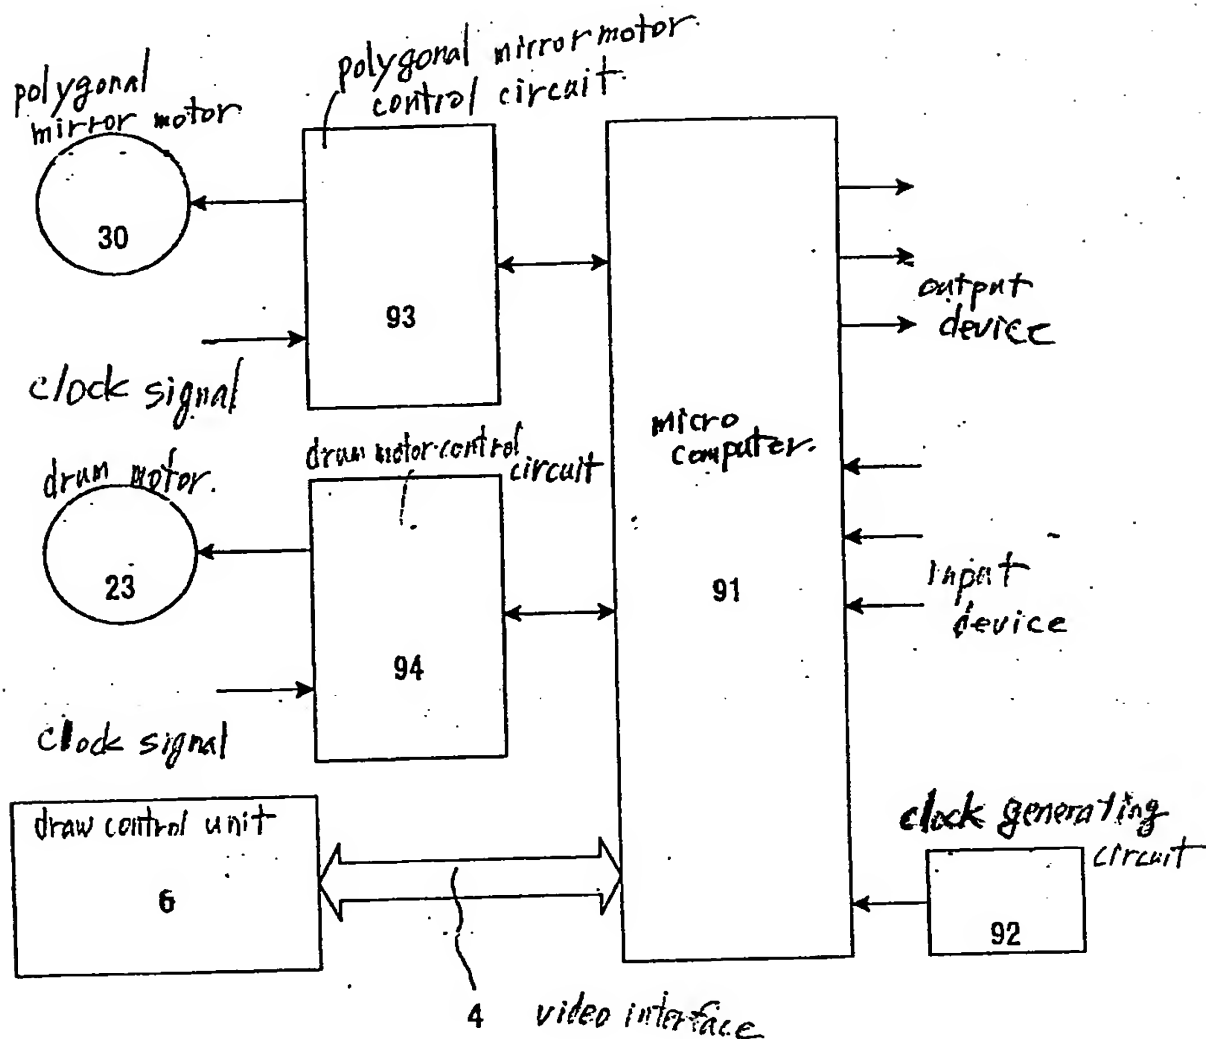 polygonal
mirror motor
30
polygonal mirror motor
control circuit
93
clock signal
drum motor.
23
drum motor control
circuit
94
clock signal
draw control unit
6
4 video interface
micro
computer.
91
output
device
input
device
clock generating
circuit
92